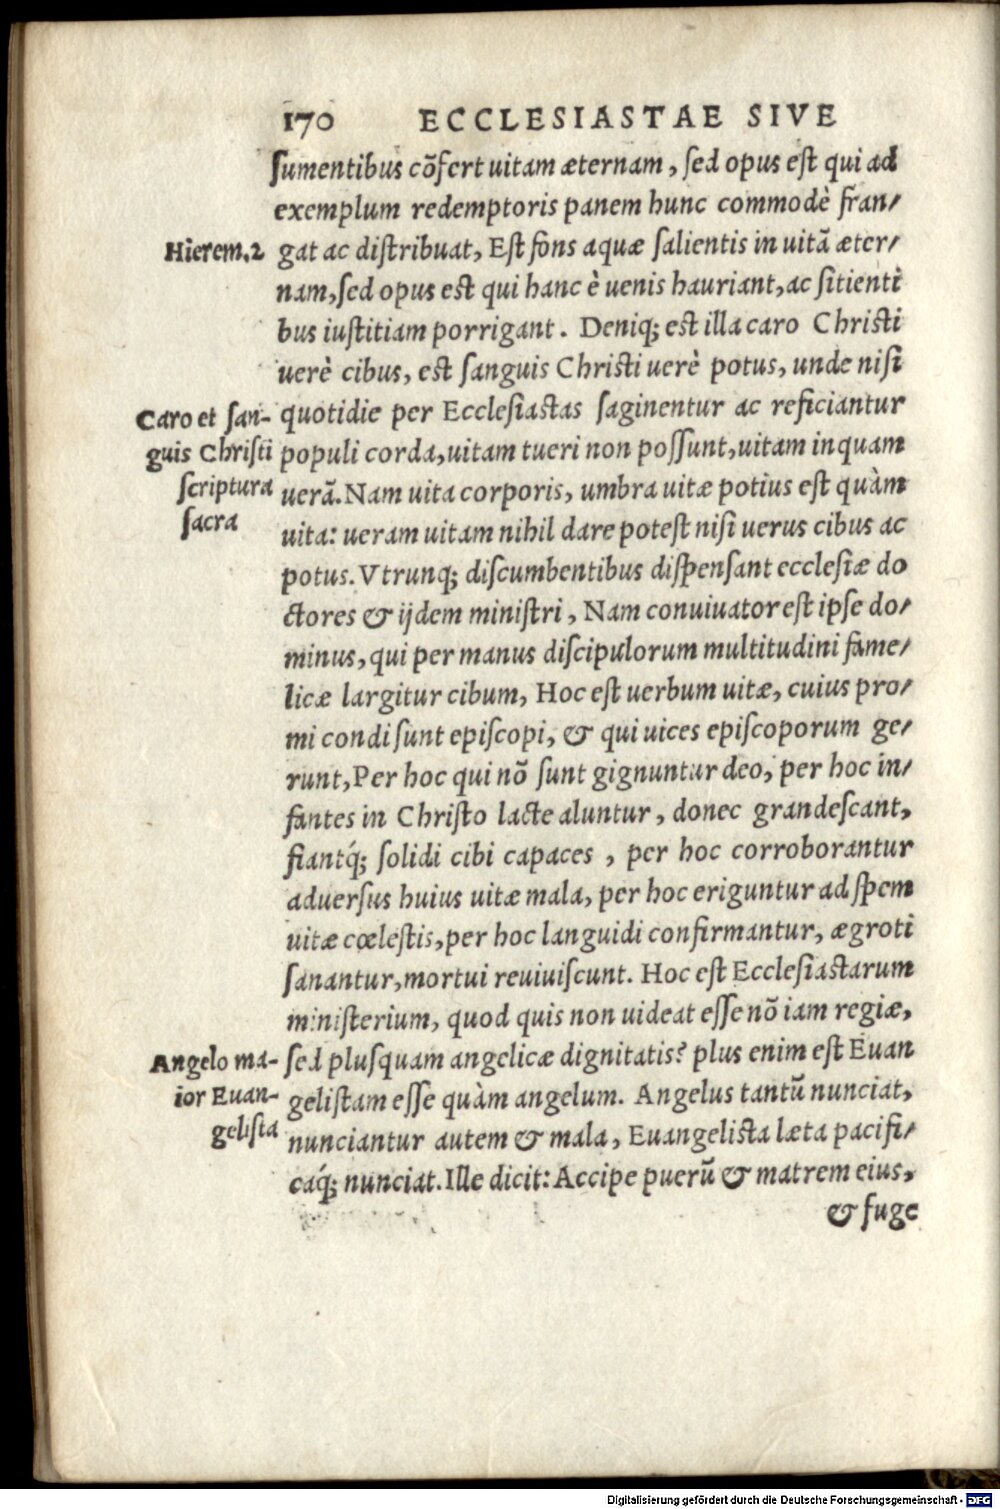 170 ECCLESIASTAE SIVE
ſumentibus cõfert uitam æternam, ſed opus eſt qui ad
exemplum redemptoris panem hunc commodè fran/
Hierem.2
gat ac diſtribuat, Eſt fons aquæ ſalientis in uitã æter/
nam, ſed opus eſt qui hanc è uenis hauriant, ac ſitienti
bus iuſtitiam porrigant. Deniq; eſt illa caro Chriſti
uerè cibus, eſt ſanguis Chriſti uerè potus, unde niſi
Caro et ſan-
guis Chriſti
ſcriptura
ſacra
quotidie per Eccleſiaſtas ſaginentur ac reficiantur
populi corda, uitam tueri non poſſunt, uitam inquam
uerã. Nam uita corporis, umbra uitæ potius eſt quàm
uita: ueram uitam nihil dare poteſt niſi uerus cibus ac
potus. Vtrunq; diſcumbentibus diſpenſant eccleſiæ do
ctores & ijdem miniſtri, Nam conuiuator eſt ipſe do/
minus, qui per manus diſcipulorum multitudini fame/
licæ largitur cibum, Hoc eſt uerbum uitæ, cuius pro/
mi condi ſunt epiſcopi, & qui uices epiſcoporum ge/
runt, Per hoc qui nõ ſunt gignuntur deo, per hoc in/
fantes in Chriſto lacte aluntur, donec grandeſcant,
fiantq́; ſolidi cibi capaces, per hoc corroborantur
aduerſus huius uitæ mala, per hoc eriguntur ad ſpem
uitæ cœleſtis, per hoc languidi confirmantur, ægroti
ſanantur, mortui reuiuiſcunt. Hoc eſt Eccleſiaſtarum
miniſterium, quod quis non uideat eſſe nõ iam regiæ,
Angelo ma-
ior Euan-
geliſta
ſed pluſquam angelicæ dignitatis? plus enim eſt Euan
geliſtam eſſe quàm angelum. Angelus tantũ nunciat,
nunciantur autem & mala, Euangeliſta læta pacifi/
caq́; nunciat. Ille dicit: Accipe puerũ & matrem eius,
& fuge
Digitalisierung gefördert durch die Deutsche Forschungsgemeinschaft - DFG